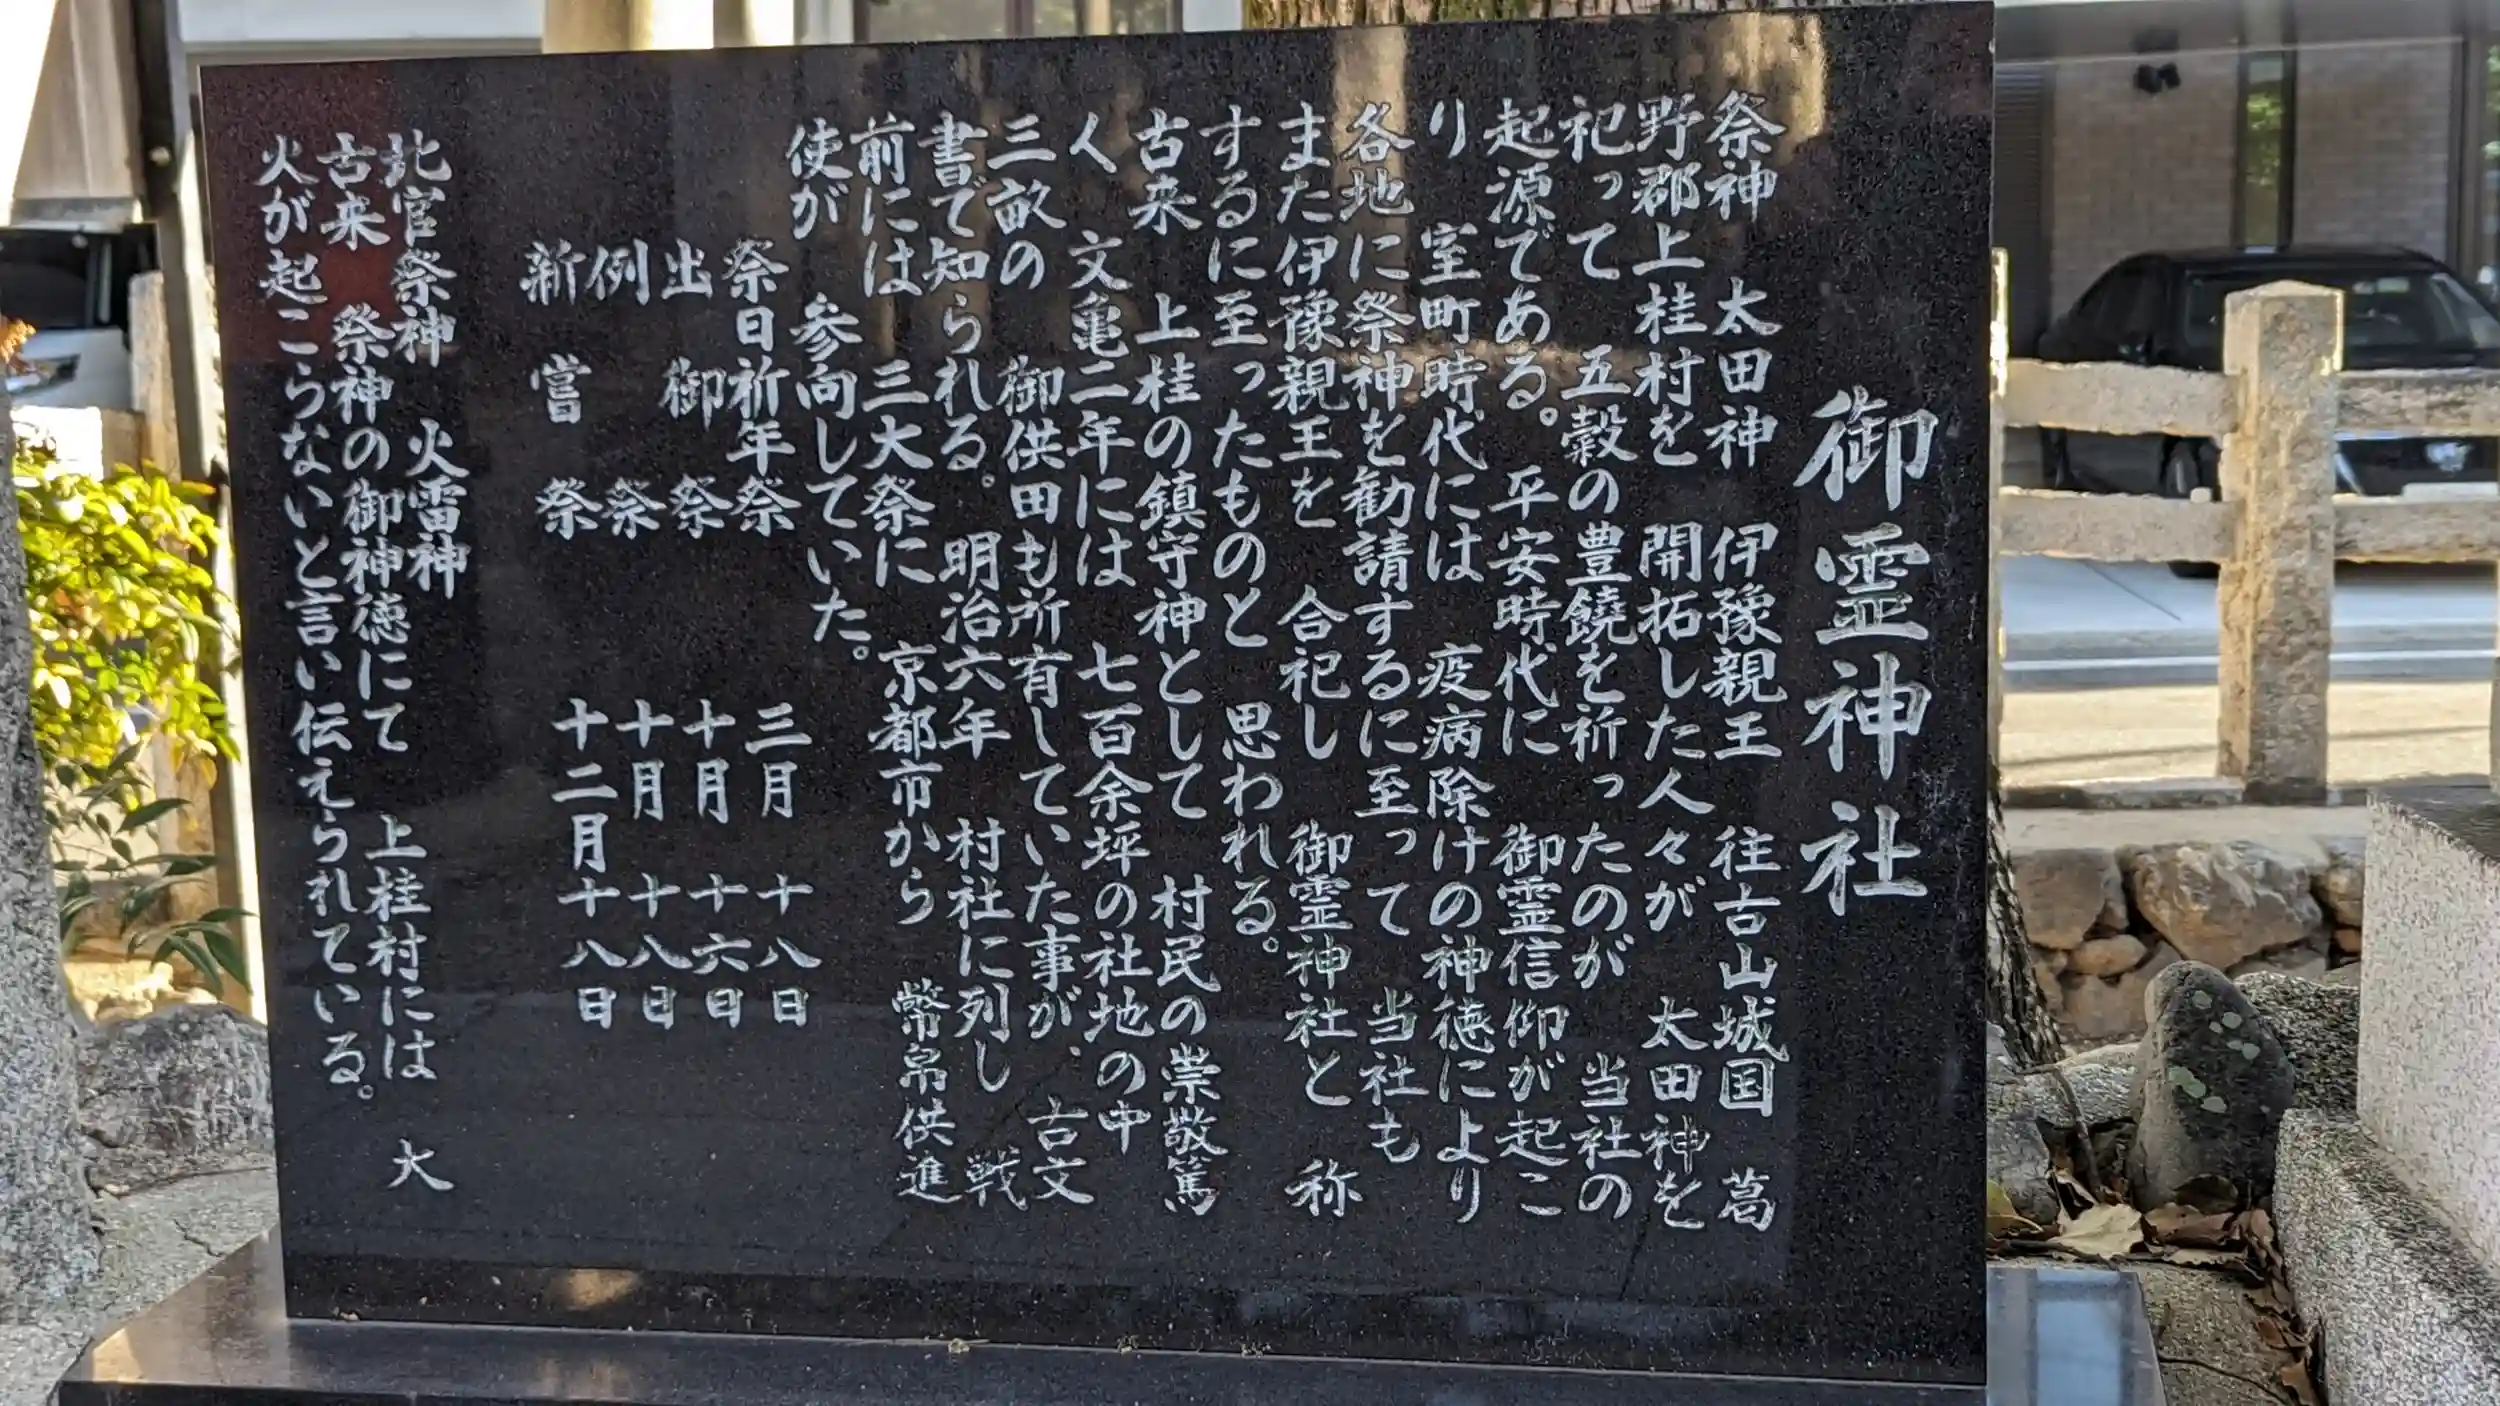 御霊神社
祭神　太田神　伊豫親王　往古山城国　葛
野郡上桂村を　開拓した人々が　太田神を
祀って　五穀の豊饒を祈ったのが　当社の
起源である。　平安時代に　御霊信仰が起こ
り　室町時代には　疫病除けの神徳により
各地に祭神を勧請するに至って　当社も
また伊豫親王を　合祀し　御霊神社と　称
するに至ったものと　思われる。
古来　上桂の鎮守神として　村民の崇敬篤
く　文亀二年には　七百余坪の社地の中
三畝の　御供田も所有していた事が、古文
書で知られる。　明治六年　村社に列し　戦
前には　三大祭に　京都市から　幣帛供進
使が　参向していた。
祭日祈年祭　三月　十八日
出御祭　十月　十六日
例祭　十月　十八日
新嘗祭　十二月十八日
北官祭神　火雷神
古来　祭神の御神徳にて　上桂村には　大
火が起こらないと言い伝えられている。